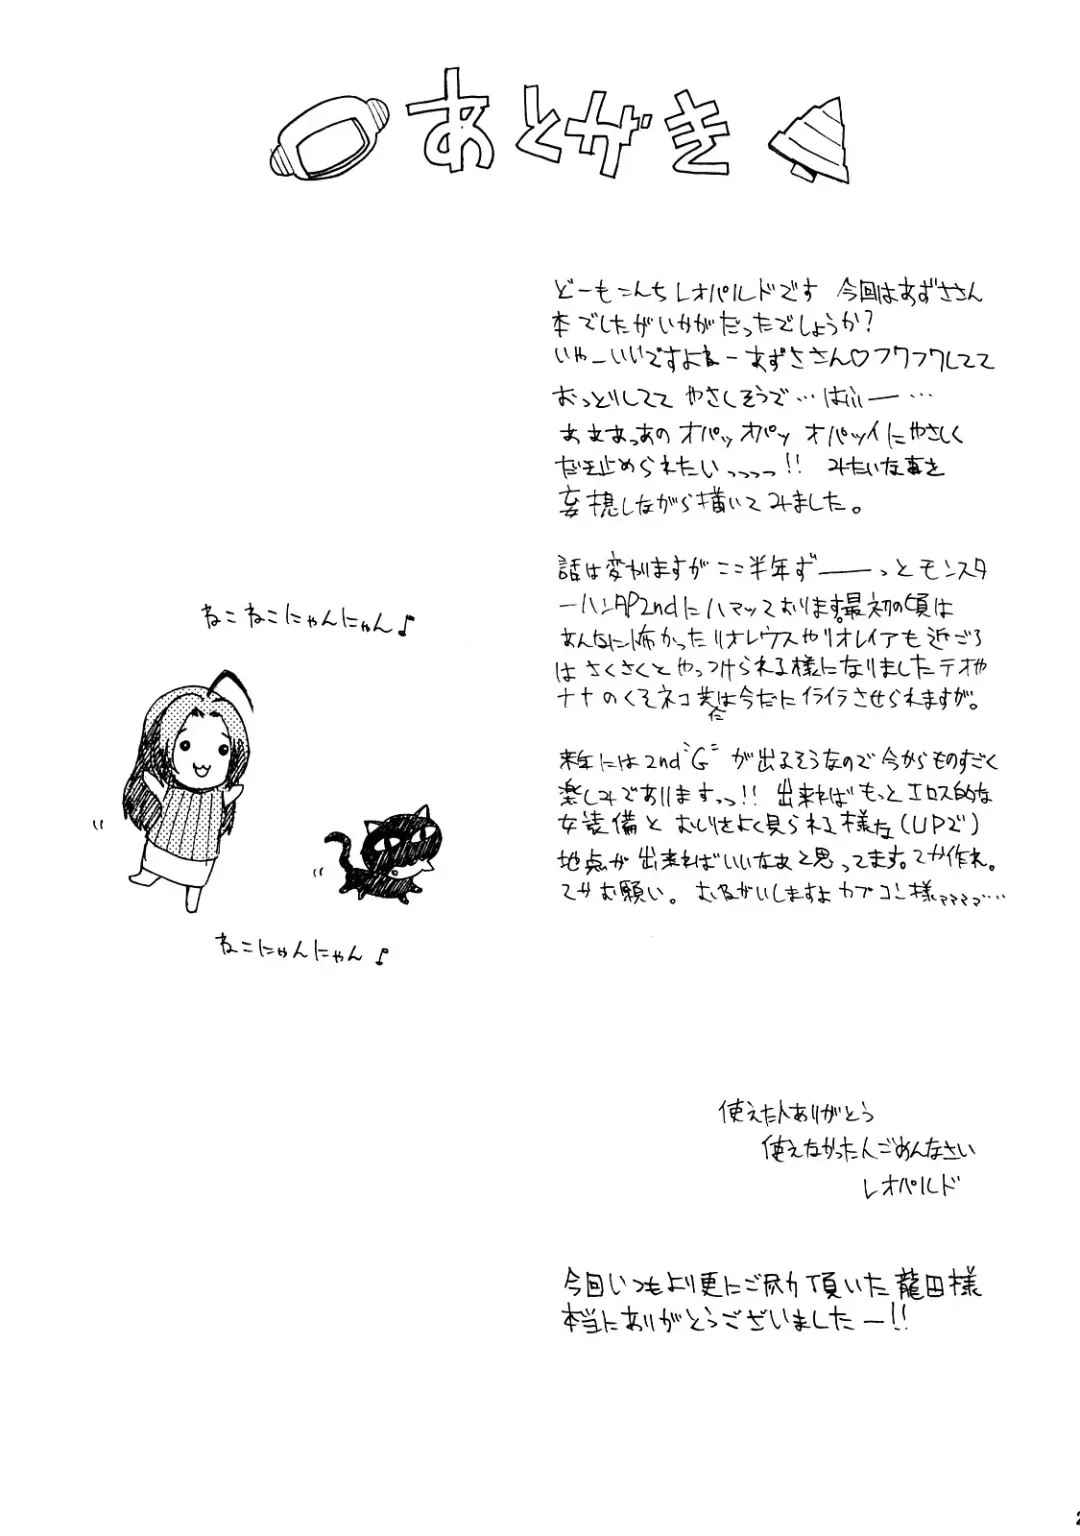 あとがき
どーもこんちレオパルドです 今回はあずささん
本でしたがいかがだったでしょうか?
いやーいいですよねーあずささん♡フワフワしてて
おっとりしてて やさしそうで…はふぃー…
あぁあっあの オパッ オパッ オパッイにやさしく
だき止められたいっっっっ!! みたいな事を
妄想しながら描いてみました。
話は変わりますがここ半年ず――っとモンスタ
ーハンタP2ndにハマッております。最初の頃は
あんなに怖かったリオレウスやリオレイアも近ごろ
はさくさくとやっつけられる様になりましたテオや
ナナのくそネコ共には今だにイライラさせられますが。
来年には2nd"G"が出るそうなので今からものすごく
楽しみでありますっっ!! 出来ればもっとエロス的な
女装備と おしりをよく見られる様な(UPで)
地点が出来ればいいなぁと思ってます。てか作れ。
てかお願い。 おねがいしますよカプコン様ァァァァ…
ねこねこにゃんにゃん♪
ねこにゃんにゃん♪
使えた人ありがとう
使えなかった人ごめんなさい
レオパルド
今回いつもより更にご尽力頂いた龍田様
本当にありがとうございましたー!!
2